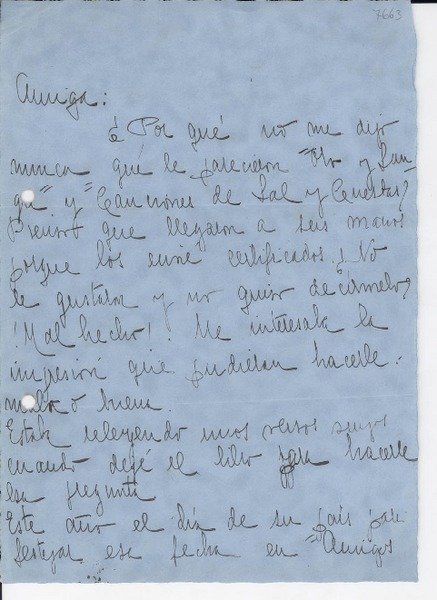 7663
Amiga:
¿Por qué no me dijo
nunca qué le parecieron "Oro y San-
gre" y "Canciones de Sal y Cuestas?
Pienso que llegaron a sus manos
porque los envié certificados. ¿No
le gustaron y no quiso decírmelo?
¡Mal hecho! Me interesaba la
impresión que pudieran hacerle.
mala o buena.
Estaba releyendo unos versos suyos
cuando dejé el libro para hacerle
esa pregunta
Este año el día de su país para
festejar esa fecha en "Amigos